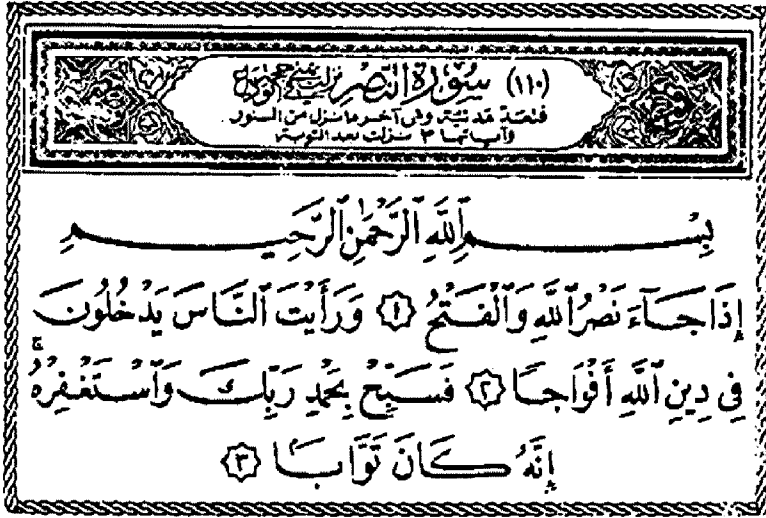 (١١٠) سُورَةُ النَّصْرِ نزلت بمنى في حجة الوداع
فتعد مدنية وهي آخر ما نزل من السور
وآياتها ٣ نزلت بعد التوبة
بِسْمِ ٱللَّهِ ٱلرَّحْمَٰنِ ٱلرَّحِيمِ
إِذَا جَآءَ نَصْرُ ٱللَّهِ وَٱلْفَتْحُ ١ وَرَأَيْتَ ٱلنَّاسَ يَدْخُلُونَ
فِي دِينِ ٱللَّهِ أَفْوَاجًا ٢ فَسَبِّحْ بِحَمْدِ رَبِّكَ وَٱسْتَغْفِرْهُۚ
إِنَّهُۥ كَانَ تَوَّابًۢا ٣